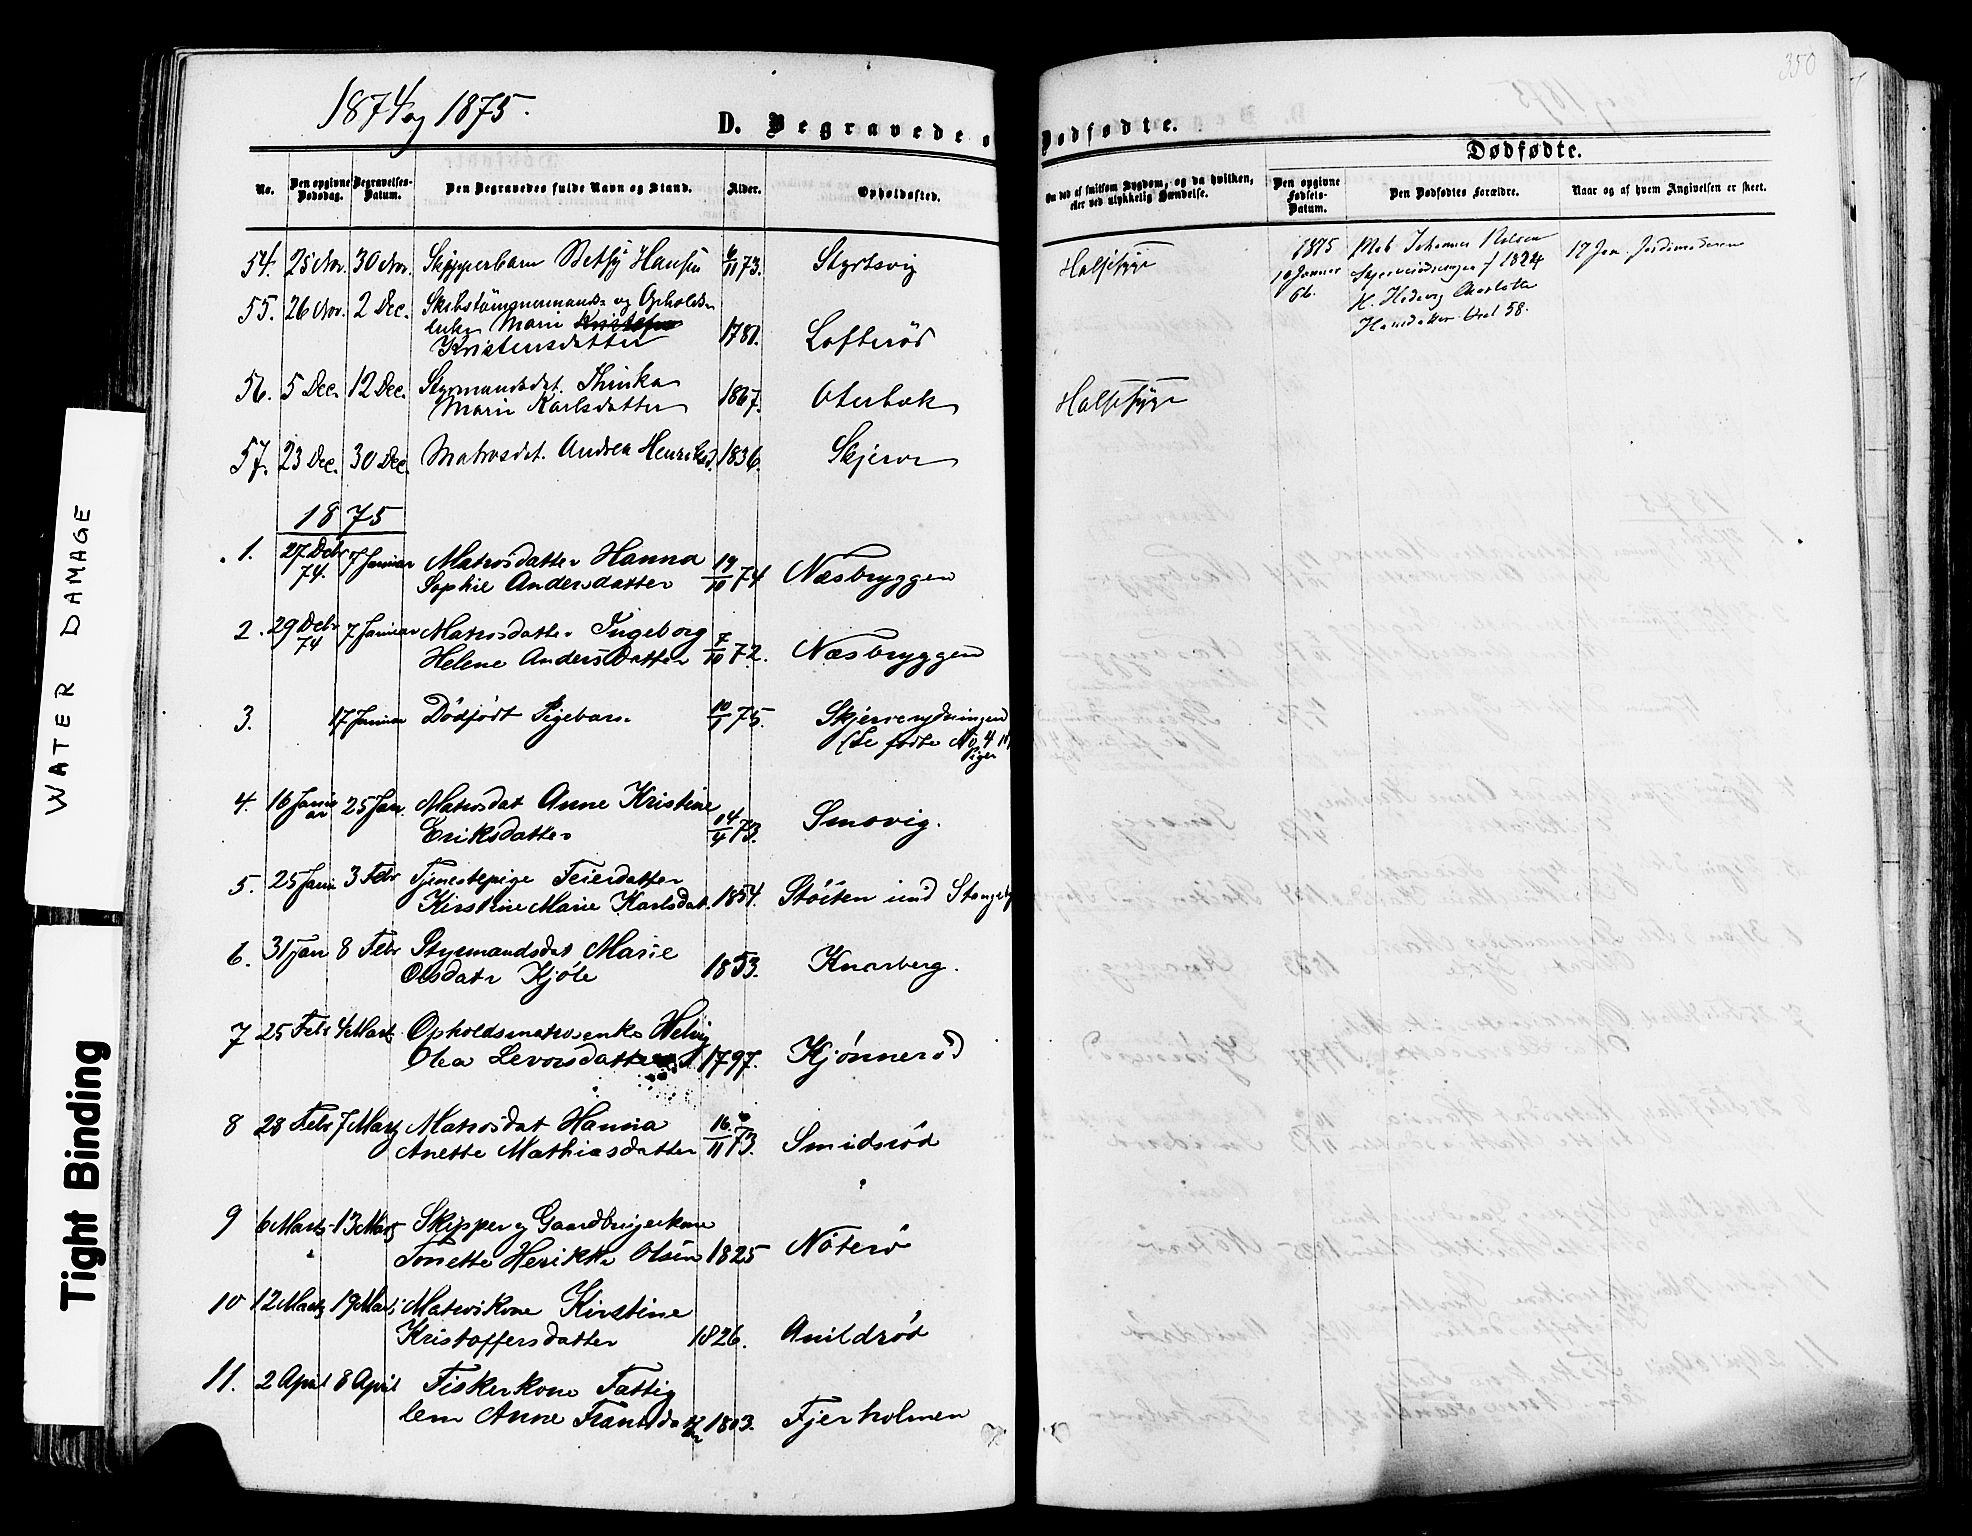 350
1874 og 1875.
D. Begravede o
Dødfødte.
Dødfødte.
No.
Den opgivne Dødsdag.
Begravelses-Datum.
Den Begravedes fulde Navn og Stand.
Alder.
Opholdssted.
Om død af smitsom Sygdom, og da hvilken,
eller ved ulykkelig Hændelse.
Den opgivne Fødsels-Datum.
Den Dødfødtes Forældre.
Naar og af hvem Angivelsen er skeet.
54. 25 Nov. 30 Nov. Skipperbarn Betsy Hansen 6/11 73. Styrsvig Halssyge
1875
10 Januar
Mat. Johannes
1824
H. Hedevig Charlotte
Hansdatter 58.
17 Jan. Jordmoderen
55. 26 Nov. 2 Dec. Skibstømmermands og Opholds
enke Marie
Kristensdatter 1781. Lofterød
56. 5 Dec. 12 Dec. Styrmandsdat. Thinka
Marie Karlsdatter 1867. Oterbæk Halssyge
57. 23 Dec. 30 Dec. Matrosdat. Andrea Henriksd. 1836. Skjerve
1875
1. 27 Decbr 74. 7 Januar Matrosdatter Hanna
Sophie Andersdatter 19/10 74 Næsbryggen
2. 29 Decbr 74 7 Januar Matrosdatter Ingeborg
Helene Andersdatter 7/10 72. Næsbryggen
3. 17 Januar Dødfødt Pigebarn 10/1 75. Skjerverydningen
(Se fødte No 4
Piger
4. 16 Januar 25 Jan. Matrosdat Anne Kristine
Eriksdatter 14/4 73. Smovig.
5. 25 Janu 3 Febr Tjenestepige Feierdatter
Kirstine Marie Karlsdat. 1854. Støiten
6. 31 Jan 8 Febr Styrmandsdat Marie
Olsdatr Kjøle 1853. Knarberg.
7 25 Febr 4 Marts Opholdsmatrosenke Helvig
Olea Levorsdatter 1797. Kjønnerød
8 28 Febr 7 Marts Matrosdat Hanna
Anette Mathiasdatter 16/11 73. Smidsrød
9 6 Marts 13 Marts Skipper og Gaardbrugerkone
Tonette Henrikke Olsen 1825 Nøterø
10 12 Marts 19 Marts Matroskone Kirstine
Kristoffersdatter 1826. Arildrød
11. 2 April 8 April Fiskerkone Fattig
lem Anne Fransdatter 1803. Fjerholmen
WATER DAMAGE
Tight Binding